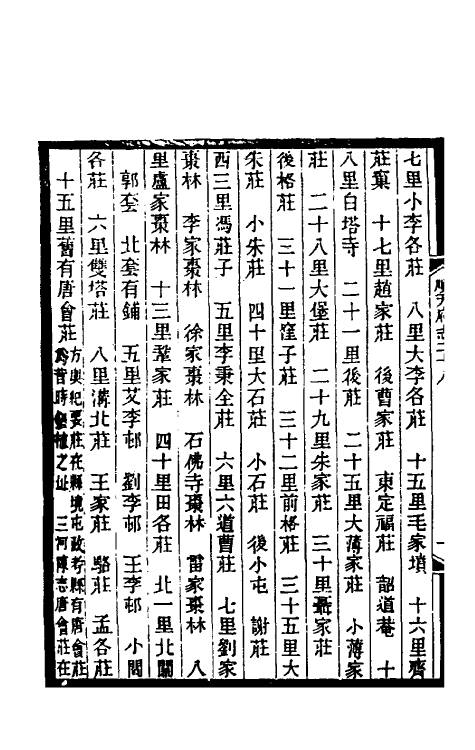 七里小李各莊　八里大李各莊　十五里毛家墳　十六里齊
莊窠　十七里趙家莊　後曹家莊　東定福莊　韶道菴　十
八里白塔寺　二十一里後莊　二十五里大薄家莊　小薄家
莊　二十八里大堡莊　二十九里朱家莊　三十里聶家莊
後格莊　三十一里窪子莊　三十二里前格莊　三十五里大
朱莊　小朱莊　四十里大石莊　小石莊　後小屯　謝莊
西三里馮莊子　五里李秉全莊　六里六道曹莊　七里劉家
棗林　李家棗林　徐家棗林　石佛寺棗林　雷家棗林　八
里盧家棗林　十三里龔家莊　四十里田各莊　北一里北關
郭套　北套有鋪　五里艾李邨　劉李邨　王李邨　小閻
各莊　六里雙塔莊　八里溝北莊　王家莊　駱莊　孟各莊
十五里舊有唐會莊
方輿紀要莊在縣境屯政考縣有唐會莊
爲昔時之址　三河陳志唐會莊在
順天府志二十八